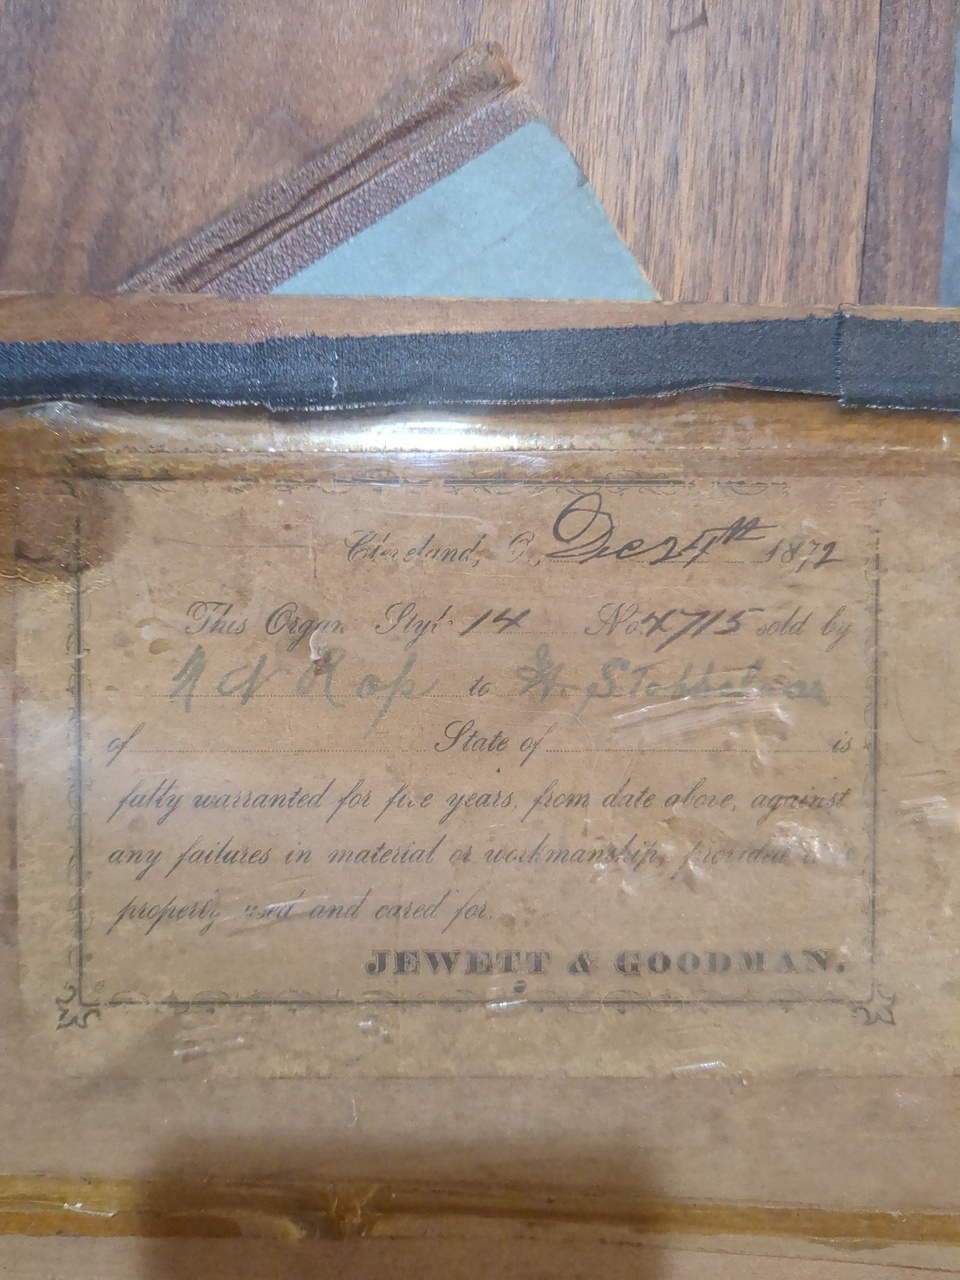 Cleveland, O., Dec 24th 1872
This Organ Style 14 No. 4715 sold by
to
of State of is
fully warranted for five years, from date above, against
any failures in material or workmanship, provided
properly used and cared for.
JEWETT & GOODMAN.